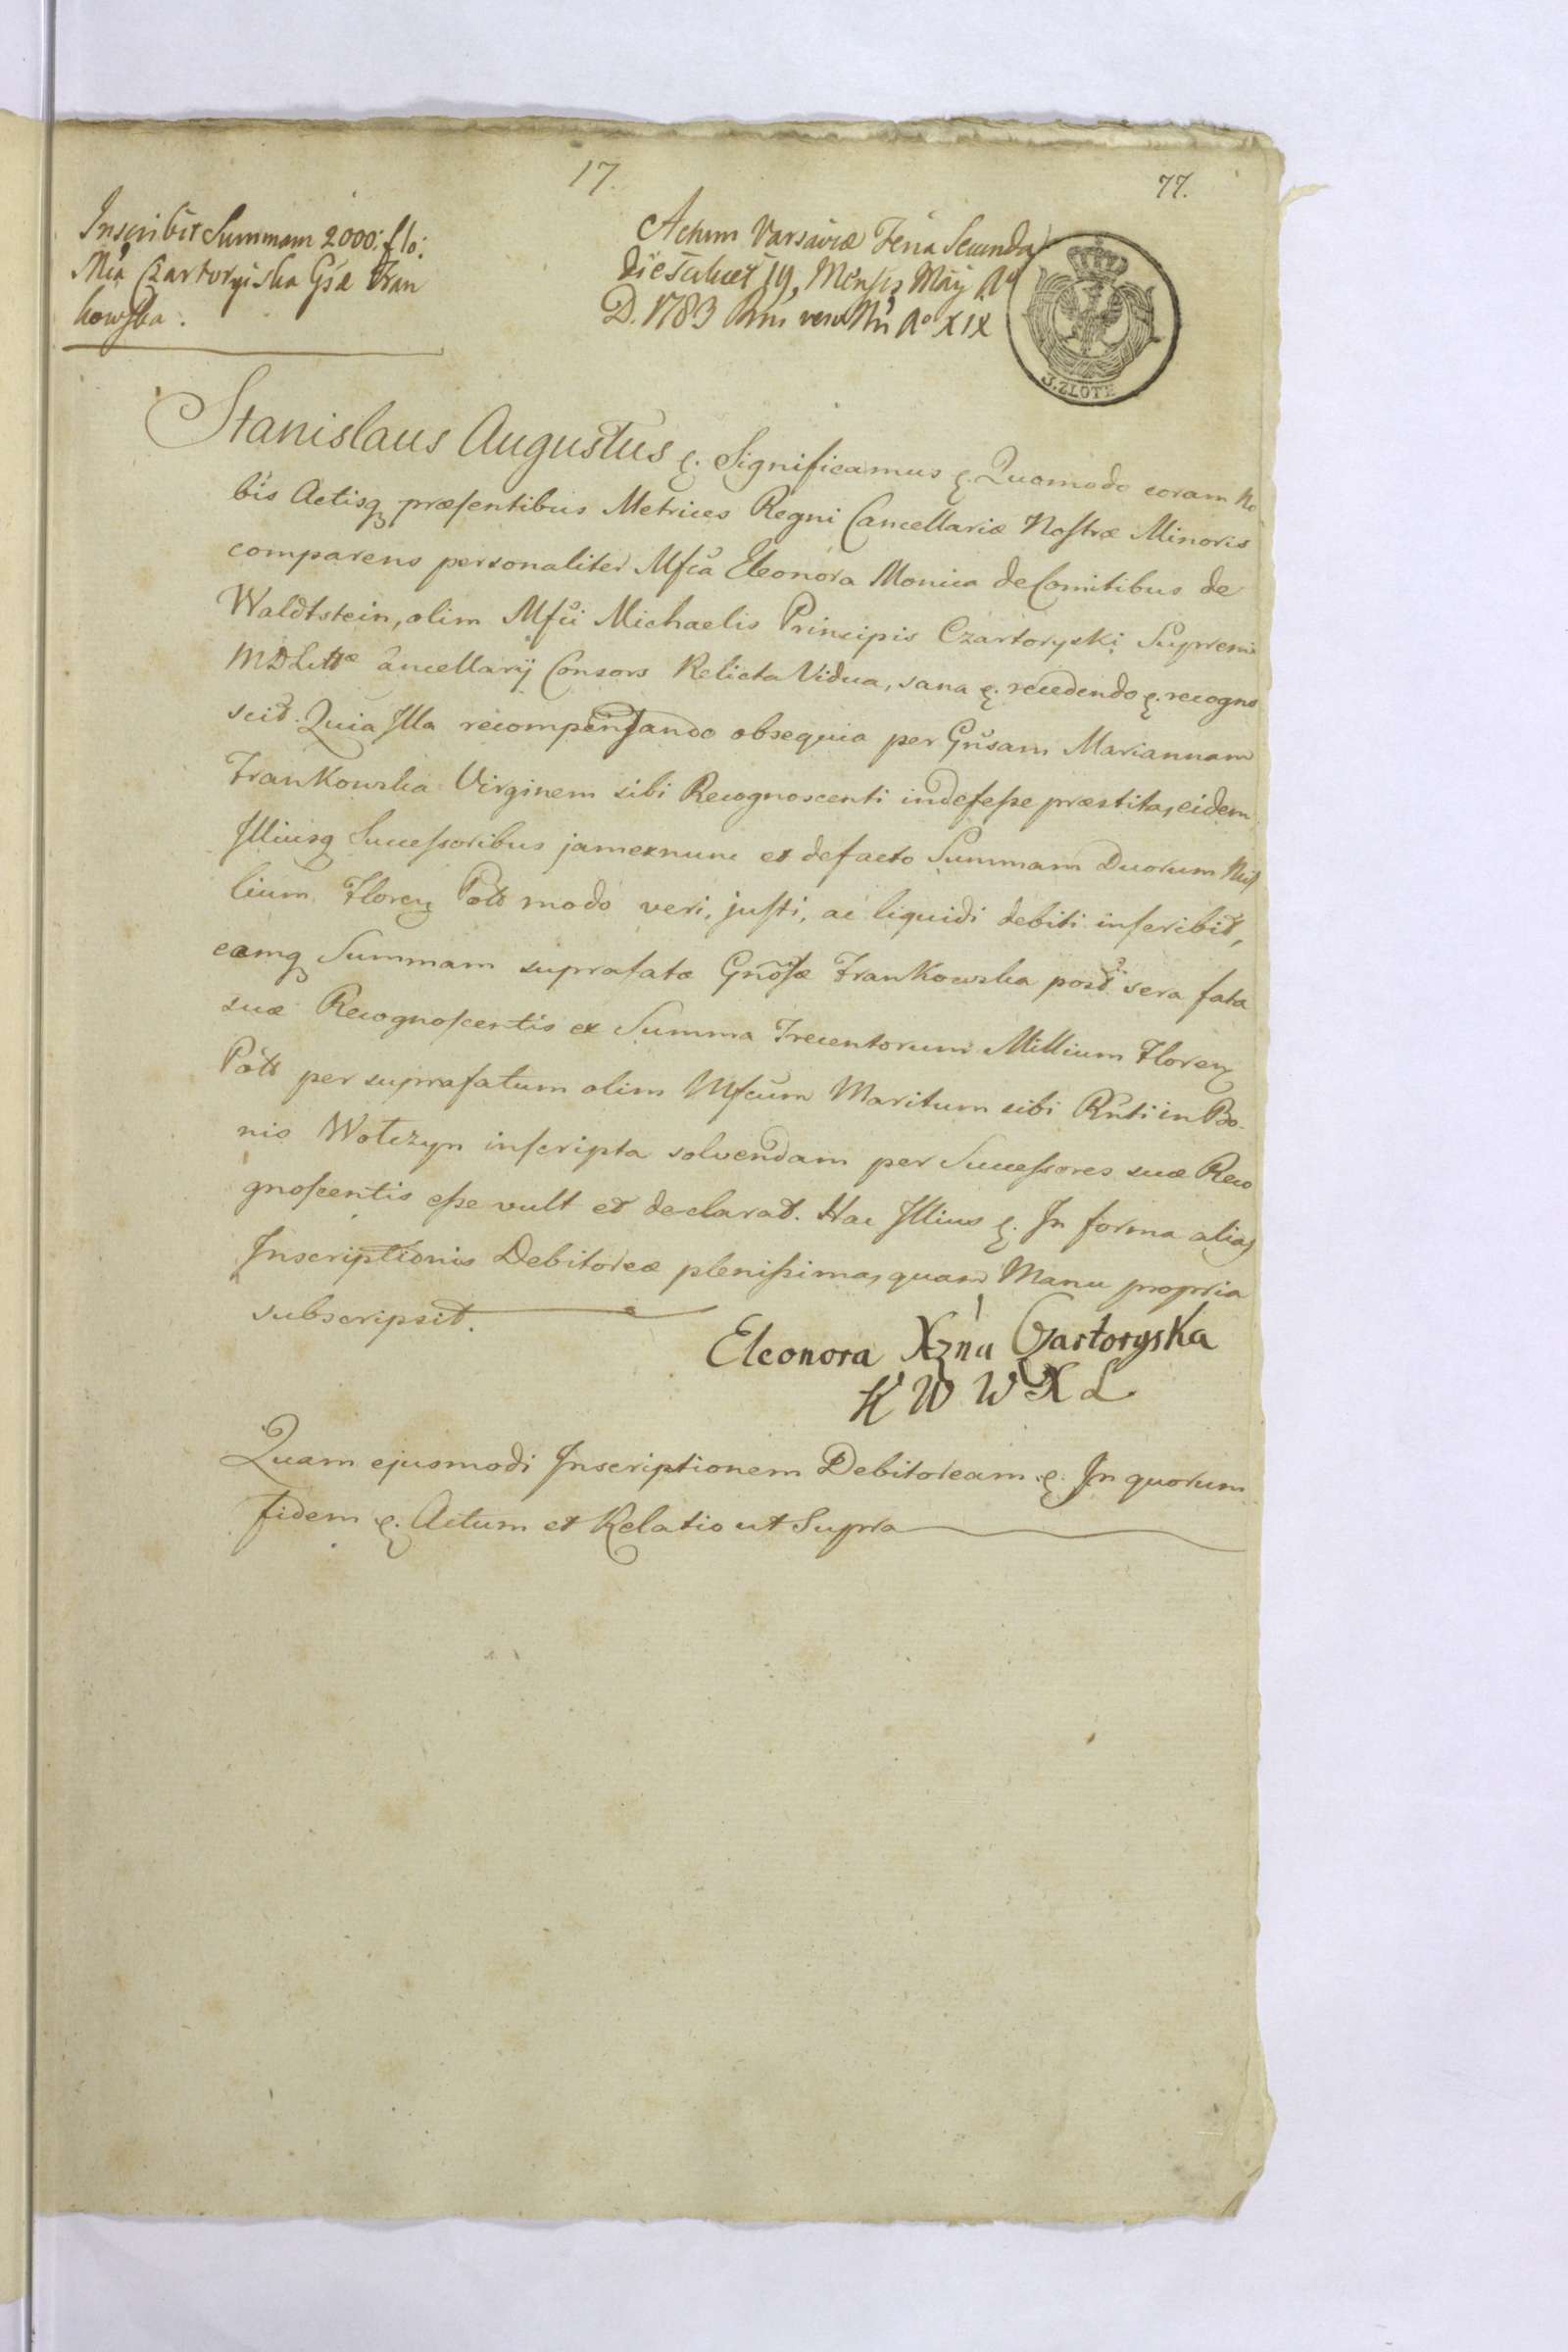 17.
77.
Inscribit Summam 2000: flo:
Mca Czartoryiska Gsæ Fran
kowska.
Actum Varsaviæ Feria Secunda
die scilicet 19, Mensis Maij Ao
D. 1783 Rni vero Nri Ao XIX
3. ZLOTE
Stanislaus Augustus &. Significamus &. Quomodo coram No
bis Actisq præsentibus Metrices Regni Cancellariæ Nostræ Minoris
comparens personaliter Mfca Eleonora Monica de Comitibus de
Waldtstein, olim Mfci Michaelis Principis Czartoryski Supremi
MDLittæ ancellarij Consors Relicta Vidua, sana &. recedendo &. recogno
scit. Quia Illa recompensando obsequia per Gnsam Mariannam
Frankowska Virginem sibi Recognoscenti indefesse præstita, eidem
Illiusq Successoribus jam ex nunc et de facto Summam Duorum Mil
lium Floren Polo modo veri, justi, ac liquidi debiti inscribit,
eamq Summam suprafatæ Gnosæ Frankowska post sera fata
suæ Recognoscentis ex Summa Trecentorum Millium Floren
Polo per suprafatum olim Mfcum Maritum sibi Rnti in Bo-
nis Wołczyn inscripta solvendam per Successores suæ Reco
gnoscentis esse vult et declarat. Hac Illius &. In forma alias
Inscriptionis Debitoreæ plenissima, quam Manu propria
subscripsit.
Eleonora Xzna Czartoryska
K W W X L
Quam ejusmodi Inscriptionem Debitoream &. In quorum
fidem &. Actum et Relatio ut Supra